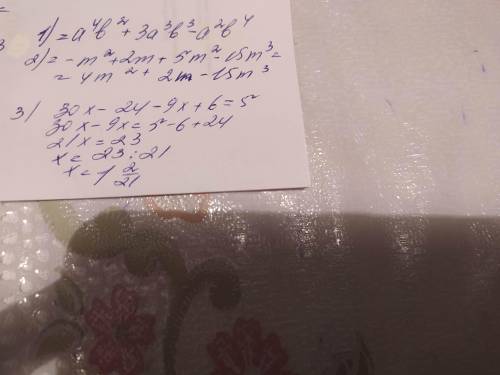 1) = a⁴b² + 3a³b³ - a²b⁴
2) = -m² + 2m + 5m² - 15m³ =
= 4m² + 2m - 15m³
3) 30x - 24 - 9x + 6 = 5
30x - 9x = 5 - 6 + 24
21x = 23
x = 23 : 21
x = 1 2/21